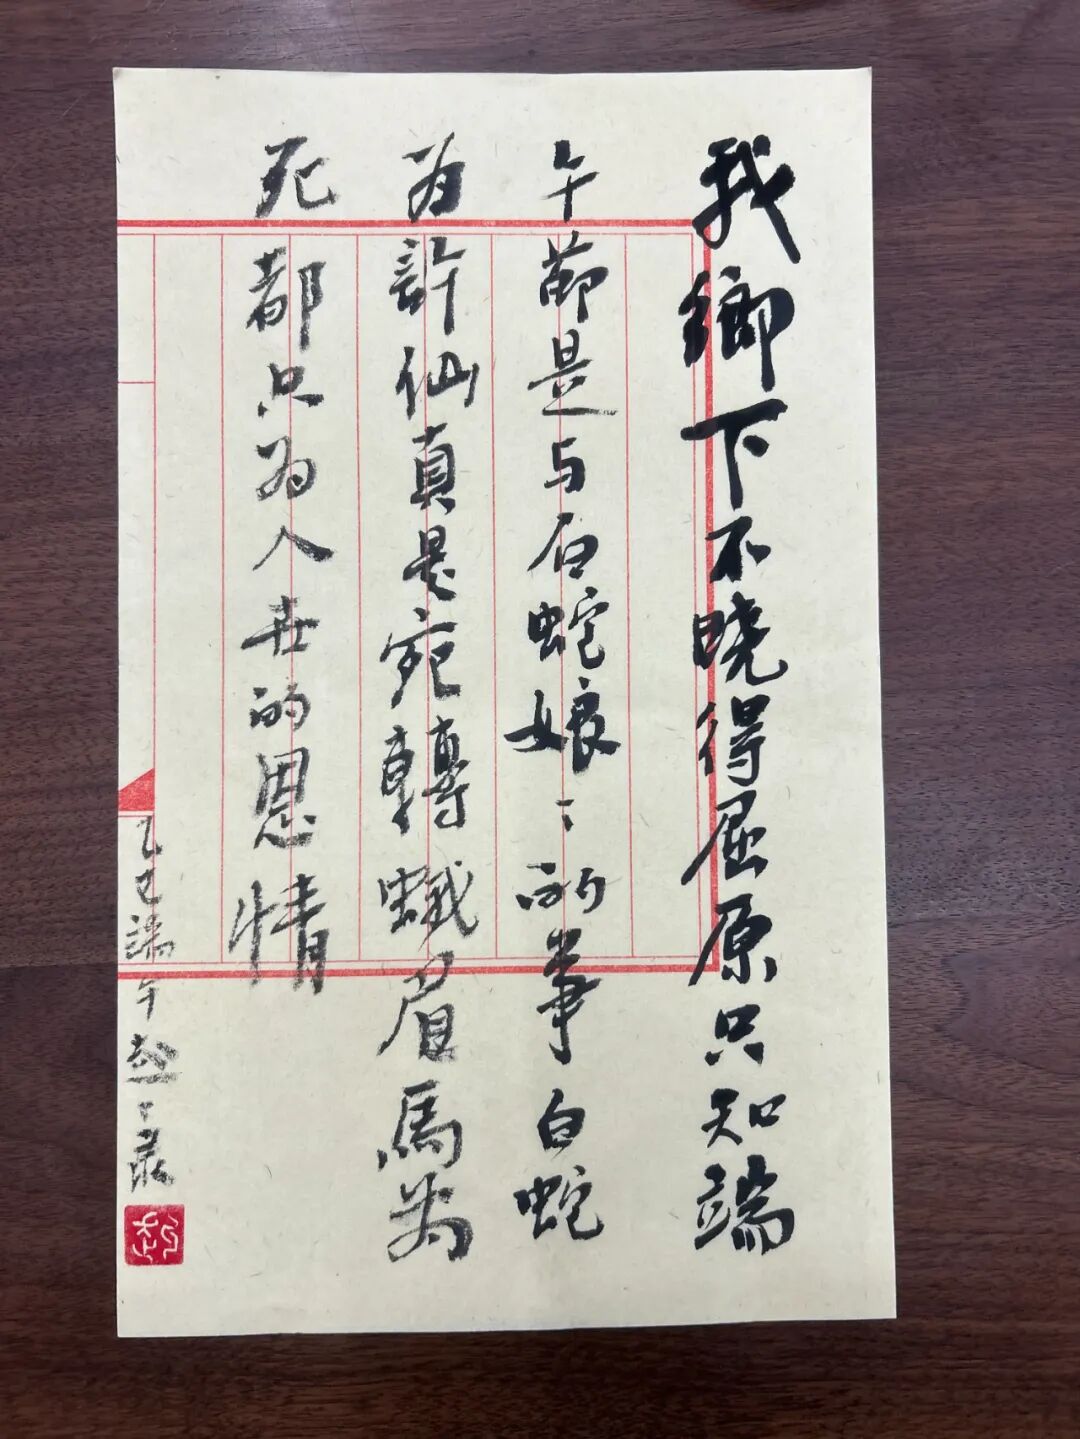 我鄉下不曉得屈原只知端
午節是与白蛇娘〻所事白蛇
为許仙真是宛轉蛾眉馬前
死都只为人世的恩情
乙巳端午